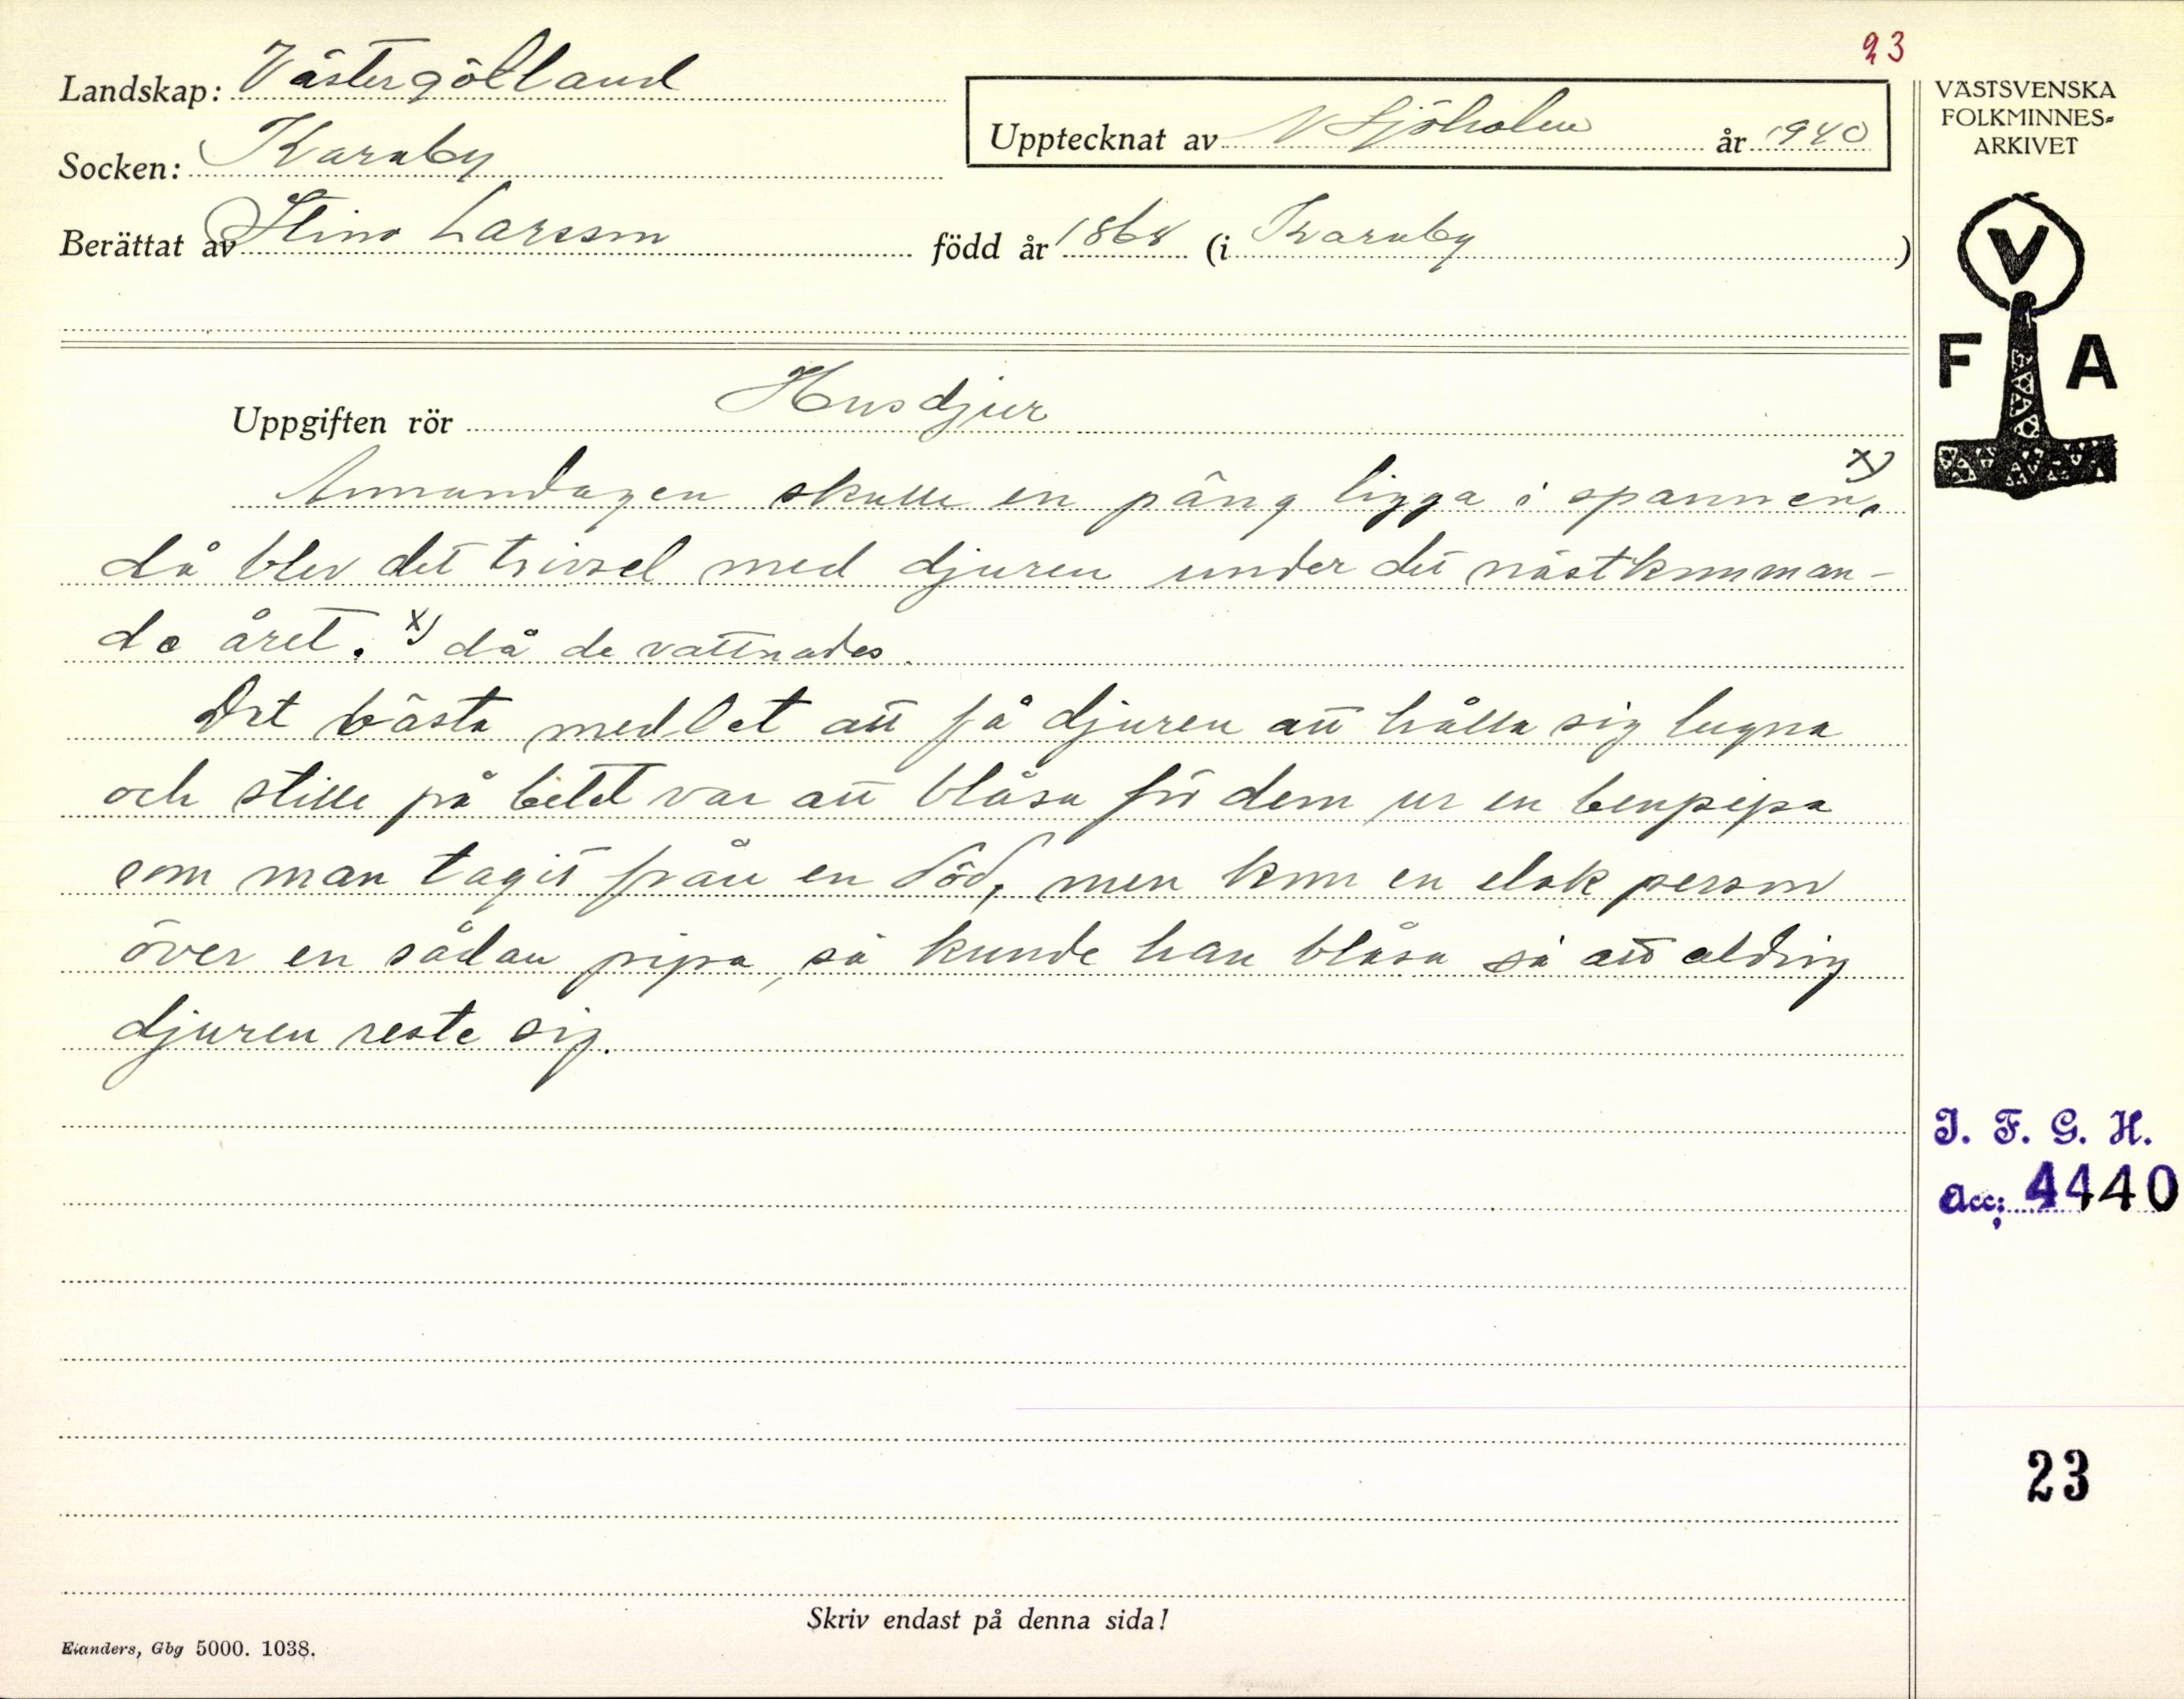 23
Landskap: Västergötland
Socken: Karaby
Upptecknat av N Sjöholm år 1940
Berättat av Stina Larsson född år 1868 (i Karaby)
Uppgiften rör Husdjur
Annandagen skulle en päng ligga i spannen x),
då blev det trivsel med djuren under det nästkomman-
de året. x) då de vattnades.
Det bästa medlet att få djuren att hålla sig lugna
och stilla på betet var att blåsa för dem ur en benpipa
som man tagit från en död, men kom en elak person
över en sådan pipa, så kunde han blåsa så att aldrig
djuren reste sig.
Skriv endast på denna sida!
Elanders, Gbg 5000. 1038.
VÄSTSVENSKA
FOLKMINNES=
ARKIVET
V
F A
I. F. G. H.
Acc: 4440
23